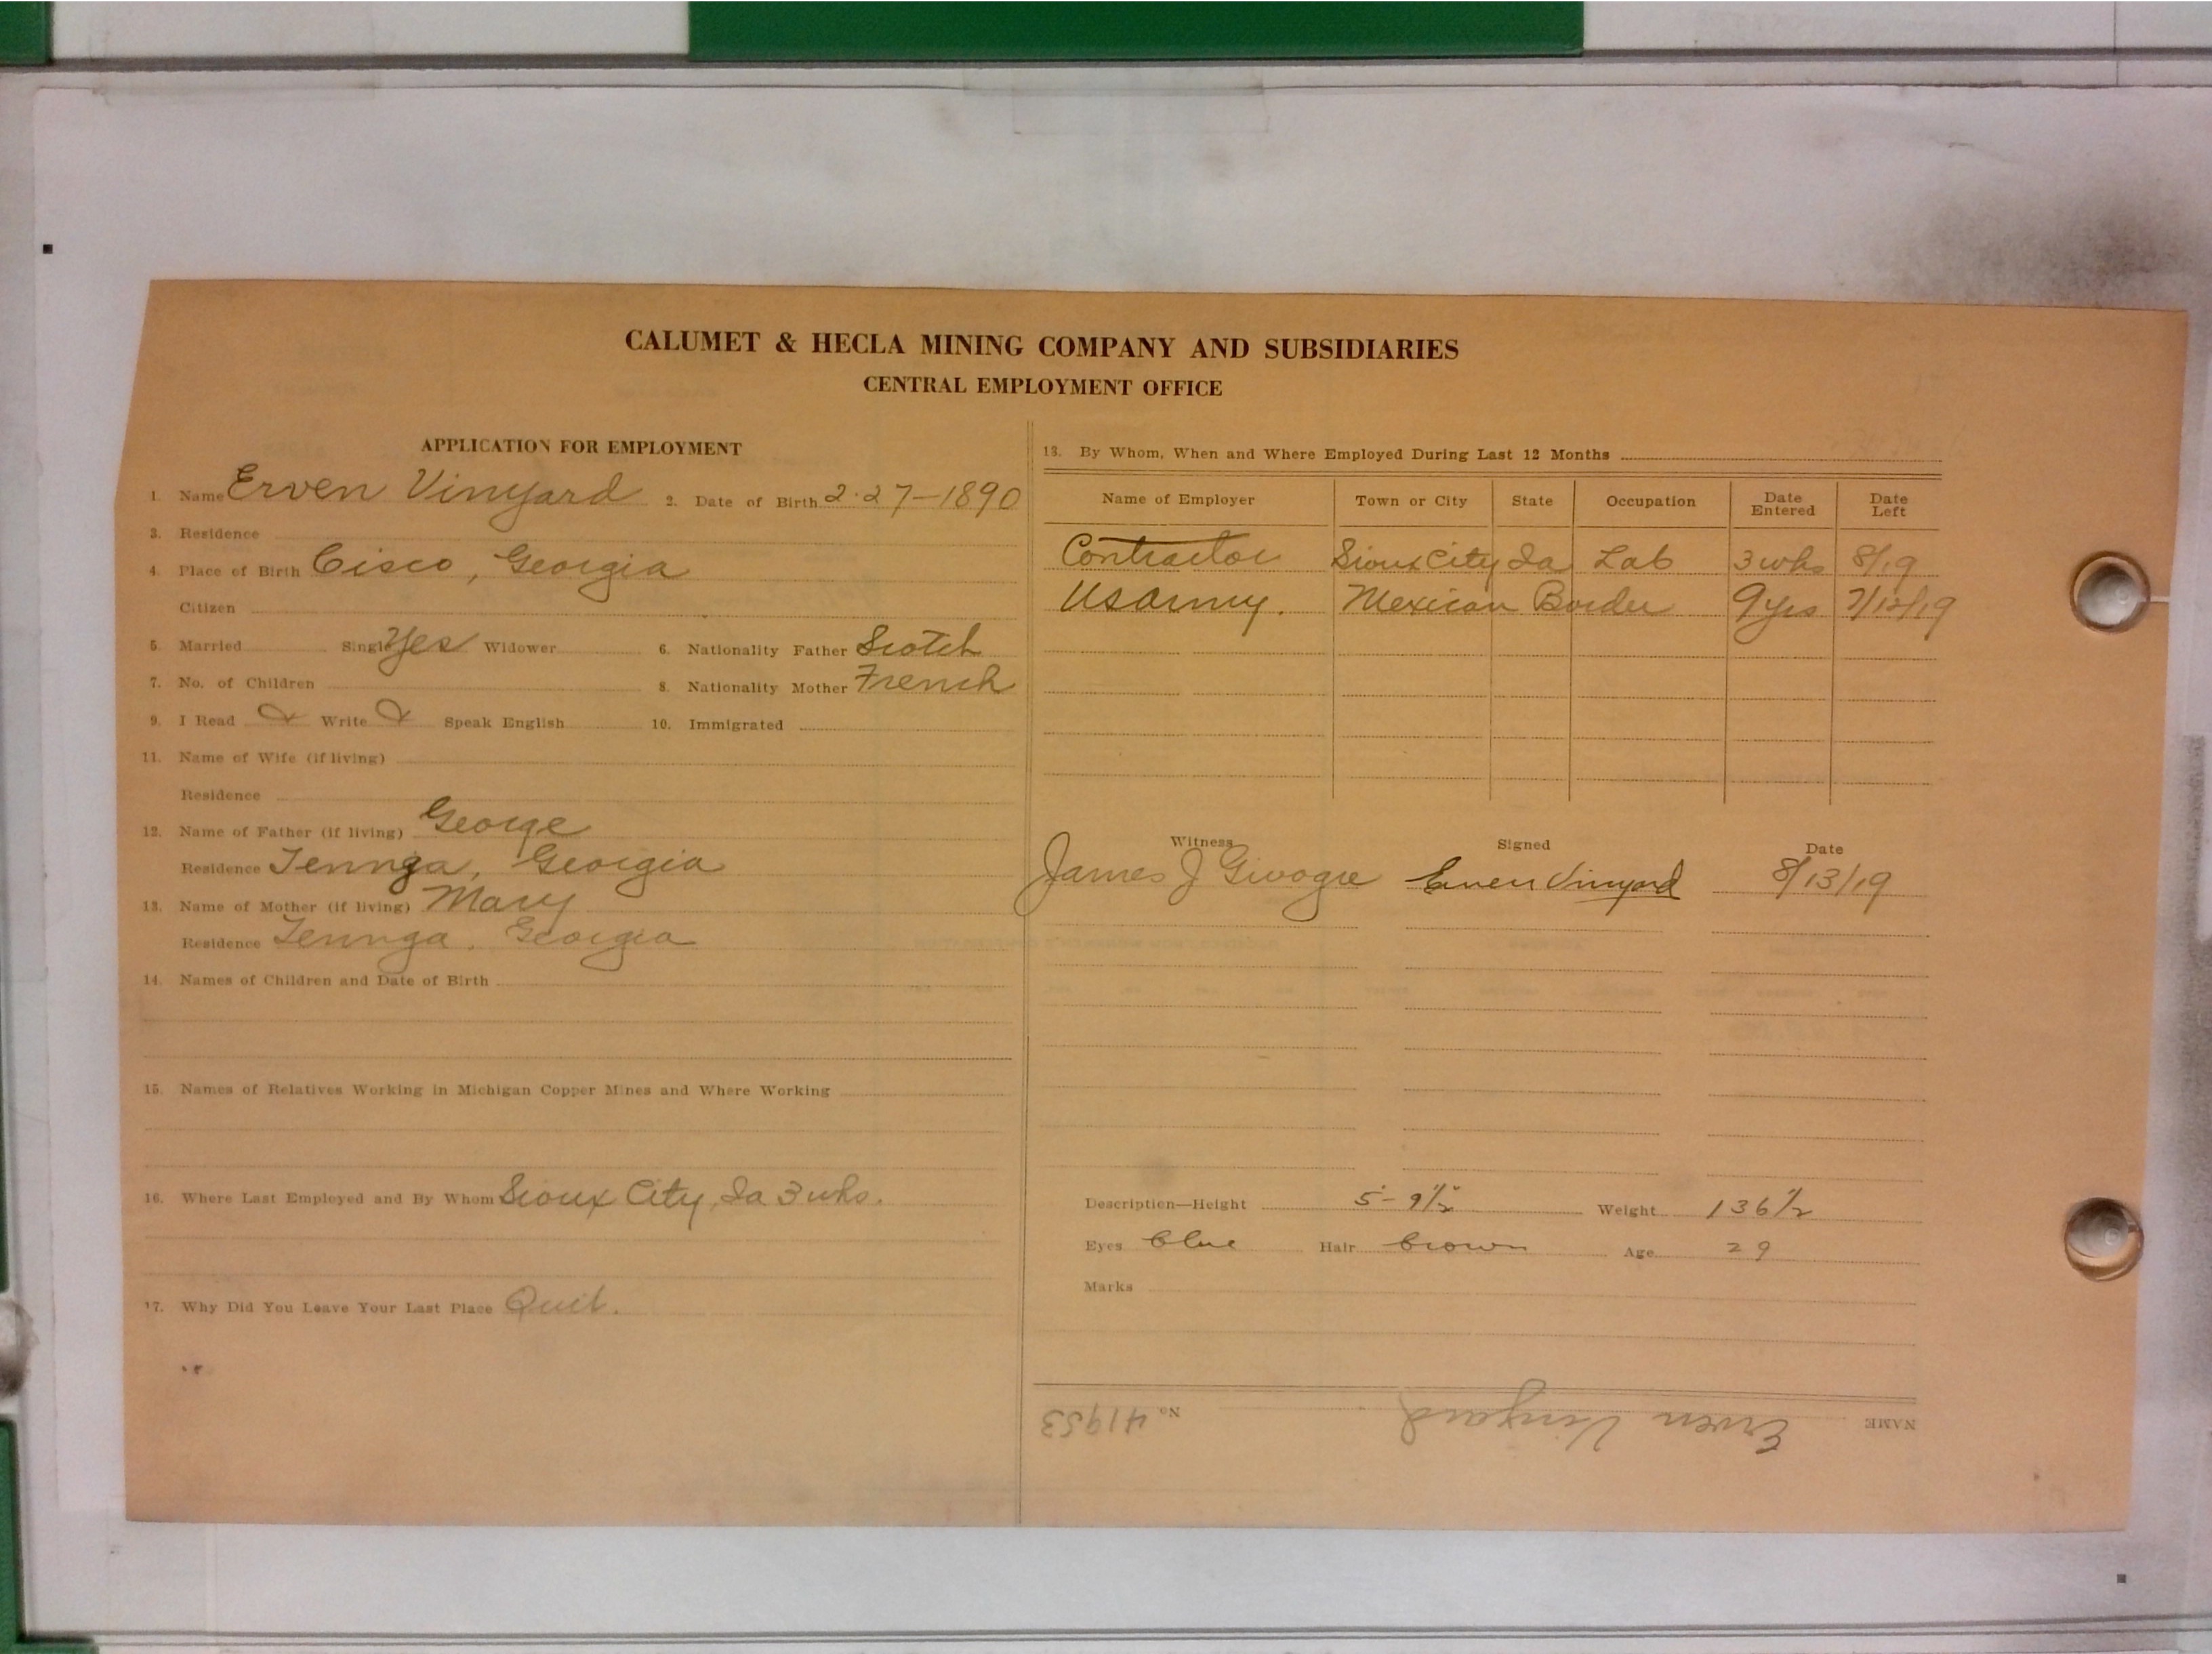 CALUMET & HECLA MINING COMPANY AND SUBSIDIARIES
CENTRAL EMPLOYMENT OFFICE
APPLICATION FOR EMPLOYMENT
1. Name Erven Vinyard 2. Date of Birth 2-27-1890
3. Residence
4. Place of Birth Cisco, Georgia
Citizen
5. Married Single Yes Widower 6. Nationality Father Scotch
7. No. of Children 8. Nationality Mother French
9. I Read Write Speak English 10. Immigrated
11. Name of Wife (if living)
Residence
12. Name of Father (if living) George
Residence Tennga, Georgia
13. Name of Mother (if living) Mary
Residence Tennga, Georgia
14. Names of Children and Date of Birth
15. Names of Relatives Working in Michigan Copper Mines and Where Working
16. Where Last Employed and By Whom Sioux City, Ia 3 wks.
17. Why Did You Leave Your Last Place Quit.
18. By Whom, When and Where Employed During Last 12 Months
Name of Employer Town or City State Occupation Date Entered Date Left
Contractor Sioux City Ia Lab 3 wks 8/19
US Army. Mexican Border 9 yrs 7/12/19
Witness Signed Date
James J Erven Vinyard 8/13/19
Description—Height 5'-9½" Weight 136½
Eyes blue Hair brown Age 29
Marks
NAME Erven Vinyard No 41953